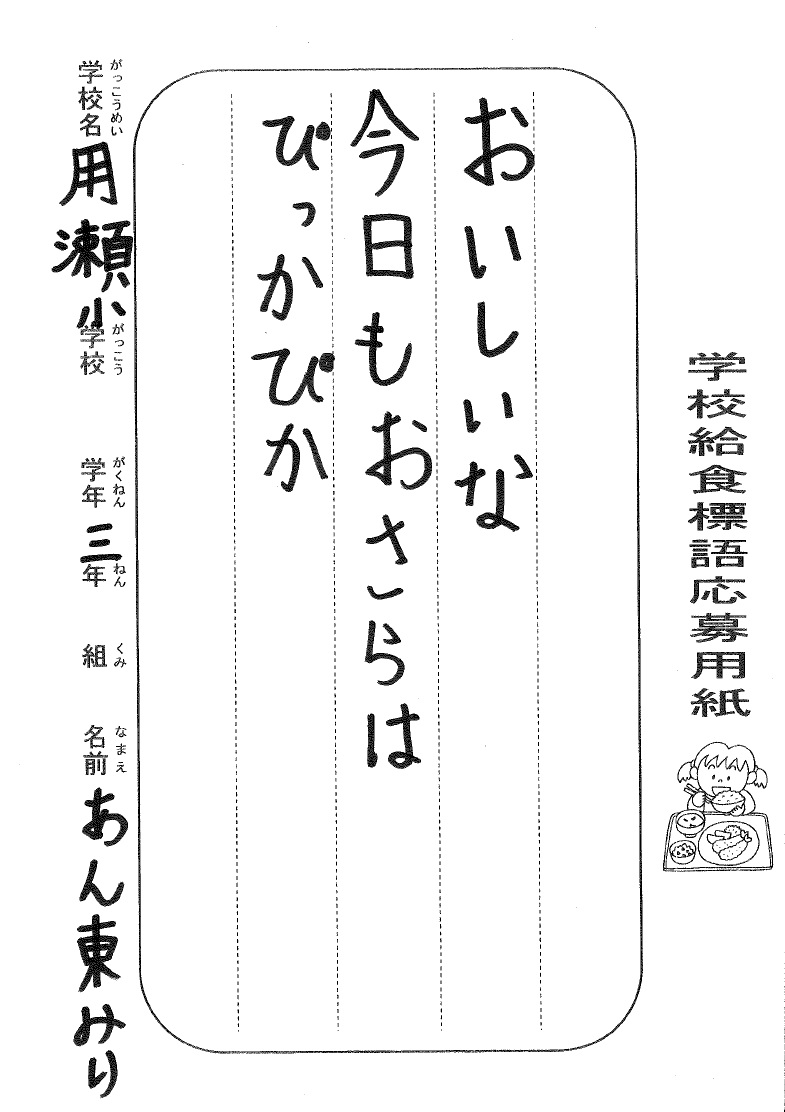 学校給食標語応募用紙
おいしいな
今日もおさらは
ぴっかぴか
学校名 用瀬小学校 学年 三年 組 名前 あん東みり
がっこうめい がっこう がくねん ねん くみ なまえ